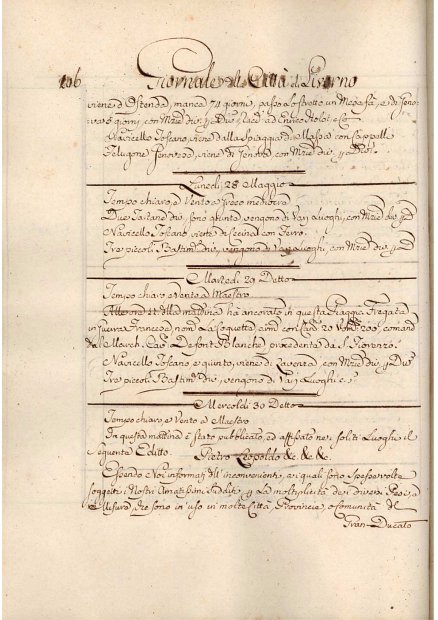 106 Giornale della Città di Livorno
viene d'Ostenda, manca 74 giorni, passò lo stretto un Mese fà, e di Genova
6 giorni, con Mzie div. p Div. Racc. ad Enrico
Navicello Toscano, viene dalla Spiaggia di Massa con Cappelle
Felugone Genovese, viene di Genova con Mzie div. p Div.
Lunedì 28 Maggio
Tempo chiaro, e Vento a Greco mediocre
Due Tartane div. sono giunte, vengono di Varj Luoghi, con Mzie div. p
Navicello Toscano viene di Cecina con Ferro.
Tre piccoli Bastim. div. vengono di Varj Luoghi, con Mzie div. p
Martedì 29 Detto
Tempo chiaro e Vento a Maestro
Alle ore 11 della mattina ha ancorato in questa Spiaggia Fregata
in Guerra Francese nom. La Coquetta con Cann. 20 Uom. 200, comand.
dal March. Cav. de Blanche procedente da S. Fiorenzo.
Navicello Toscano è giunto, viene di Lavenza, con Mzie div. p Div.
Tre piccoli Bastim. div. vengono di Varj Luoghi
Mercoldì 30 Detto
Tempo chiaro, e Vento a Maestro
In questa mattina è stato pubblicato, ed affissato nei soliti Luoghi il
seguente Editto.
Pietro Leopoldo &c. &c. &c.
Essendo Noi informati dell'inconvenienti, ai quali sono spesse volte
soggetti i Nostri Amatissimi Sudditi p La moltiplicità dei diversi Pesi, e
Misure, che sono in uso in molte Città, Provincie, o Comunità del
Gran-Ducato